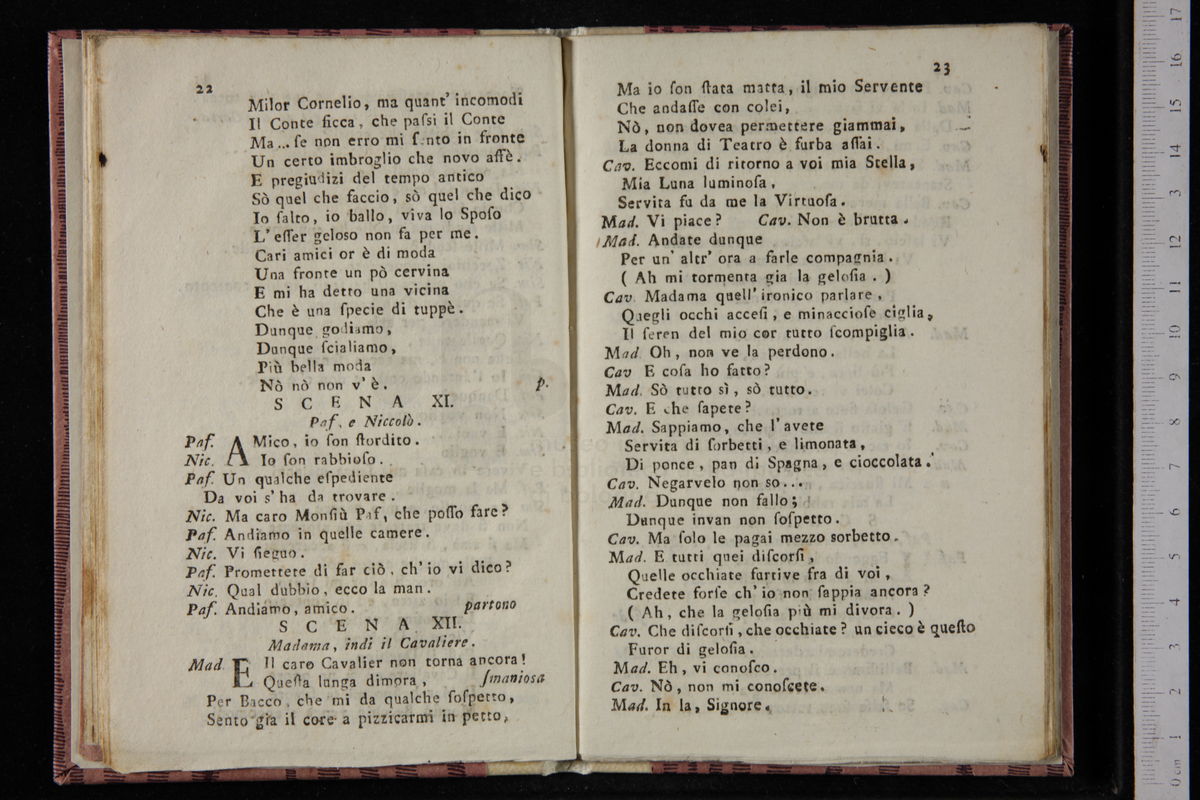 22
Milor Cornelio, ma quant' incomodi
Il Conte ficca, che paſsi il Conte
Ma... ſe non erro mi ſento in fronte
Un certo imbroglio che novo aſſè.
E pregiudizi del tempo antico
Sò quel che faccio, sò quel che dico
Io ſalto, io ballo, viva lo Spoſo
L' eſſer geloso non fa per me.
Cari amici or è di moda
Una fronte un pò cervina
E mi ha detto una vicina
Che è una ſpecie di tuppè.
Dunque godiamo,
Dunque ſcialiamo,
Più bella moda
Nò nò non v' è. p.
SCENA XI.
Paf, e Niccolò.
Paf. AMico, io ſon ſtordito.
Nic. Io ſon rabbioſo.
Paf. Un qualche eſpediente
Da voi s' ha da trovare.
Nic. Ma caro Monſiù Paf, che poſſo fare?
Paf. Andiamo in quelle camere.
Nic. Vi ſieguo.
Paf. Promettete di far ciò, ch' io vi dico?
Nic. Qual dubbio, ecco la man.
Paf. Andiamo, amico. partono
SCENA XII.
Madama, indi il Cavaliere.
Mad. E Il caro Cavalier non torna ancora!
Queſta lunga dimora, ſmanioſa
Per Bacco, che mi da qualche ſoſpetto,
Sento gia il core a pizzicarmi in petto,
23
Ma io ſon ſtata matta, il mio Servente
Che andaſſe con colei,
Nò, non dovea permettere giammai,
La donna di Teatro è furba aſſai.
Cav. Eccomi di ritorno a voi mia Stella,
Mia Luna luminoſa,
Servita fu da me la Virtuoſa.
Mad. Vi piace? Cav. Non è brutta.
Mad. Andate dunque
Per un' altr' ora a farle compagnia.
( Ah mi tormenta gia la geloſia. )
Cav. Madama quell' ironico parlare,
Quegli occhi acceſi, e minaccioſe ciglia,
Il ſeren del mio cor tutto ſcompiglia.
Mad. Oh, non ve la perdono.
Cav E coſa ho fatto?
Mad. Sò tutto sì, sò tutto.
Cav. E che ſapete?
Mad. Sappiamo, che l' avete
Servita di ſorbetti, e limonata,
Di ponce, pan di Spagna, e cioccolata.
Cav. Negarvelo non so...
Mad. Dunque non fallo;
Dunque invan non ſoſpetto.
Cav. Ma ſolo le pagai mezzo sorbetto.
Mad. E tutti quei diſcorſi,
Quelle occhiate furtive fra di voi,
Credete forſe ch' io non ſappia ancora?
( Ah, che la geloſia più mi divora. )
Cav. Che diſcorſi, che occhiate? un cieco è queſto
Furor di geloſia.
Mad. Eh, vi conoſco.
Cav. Nò, non mi conoſcete.
Mad. In la, Signore.